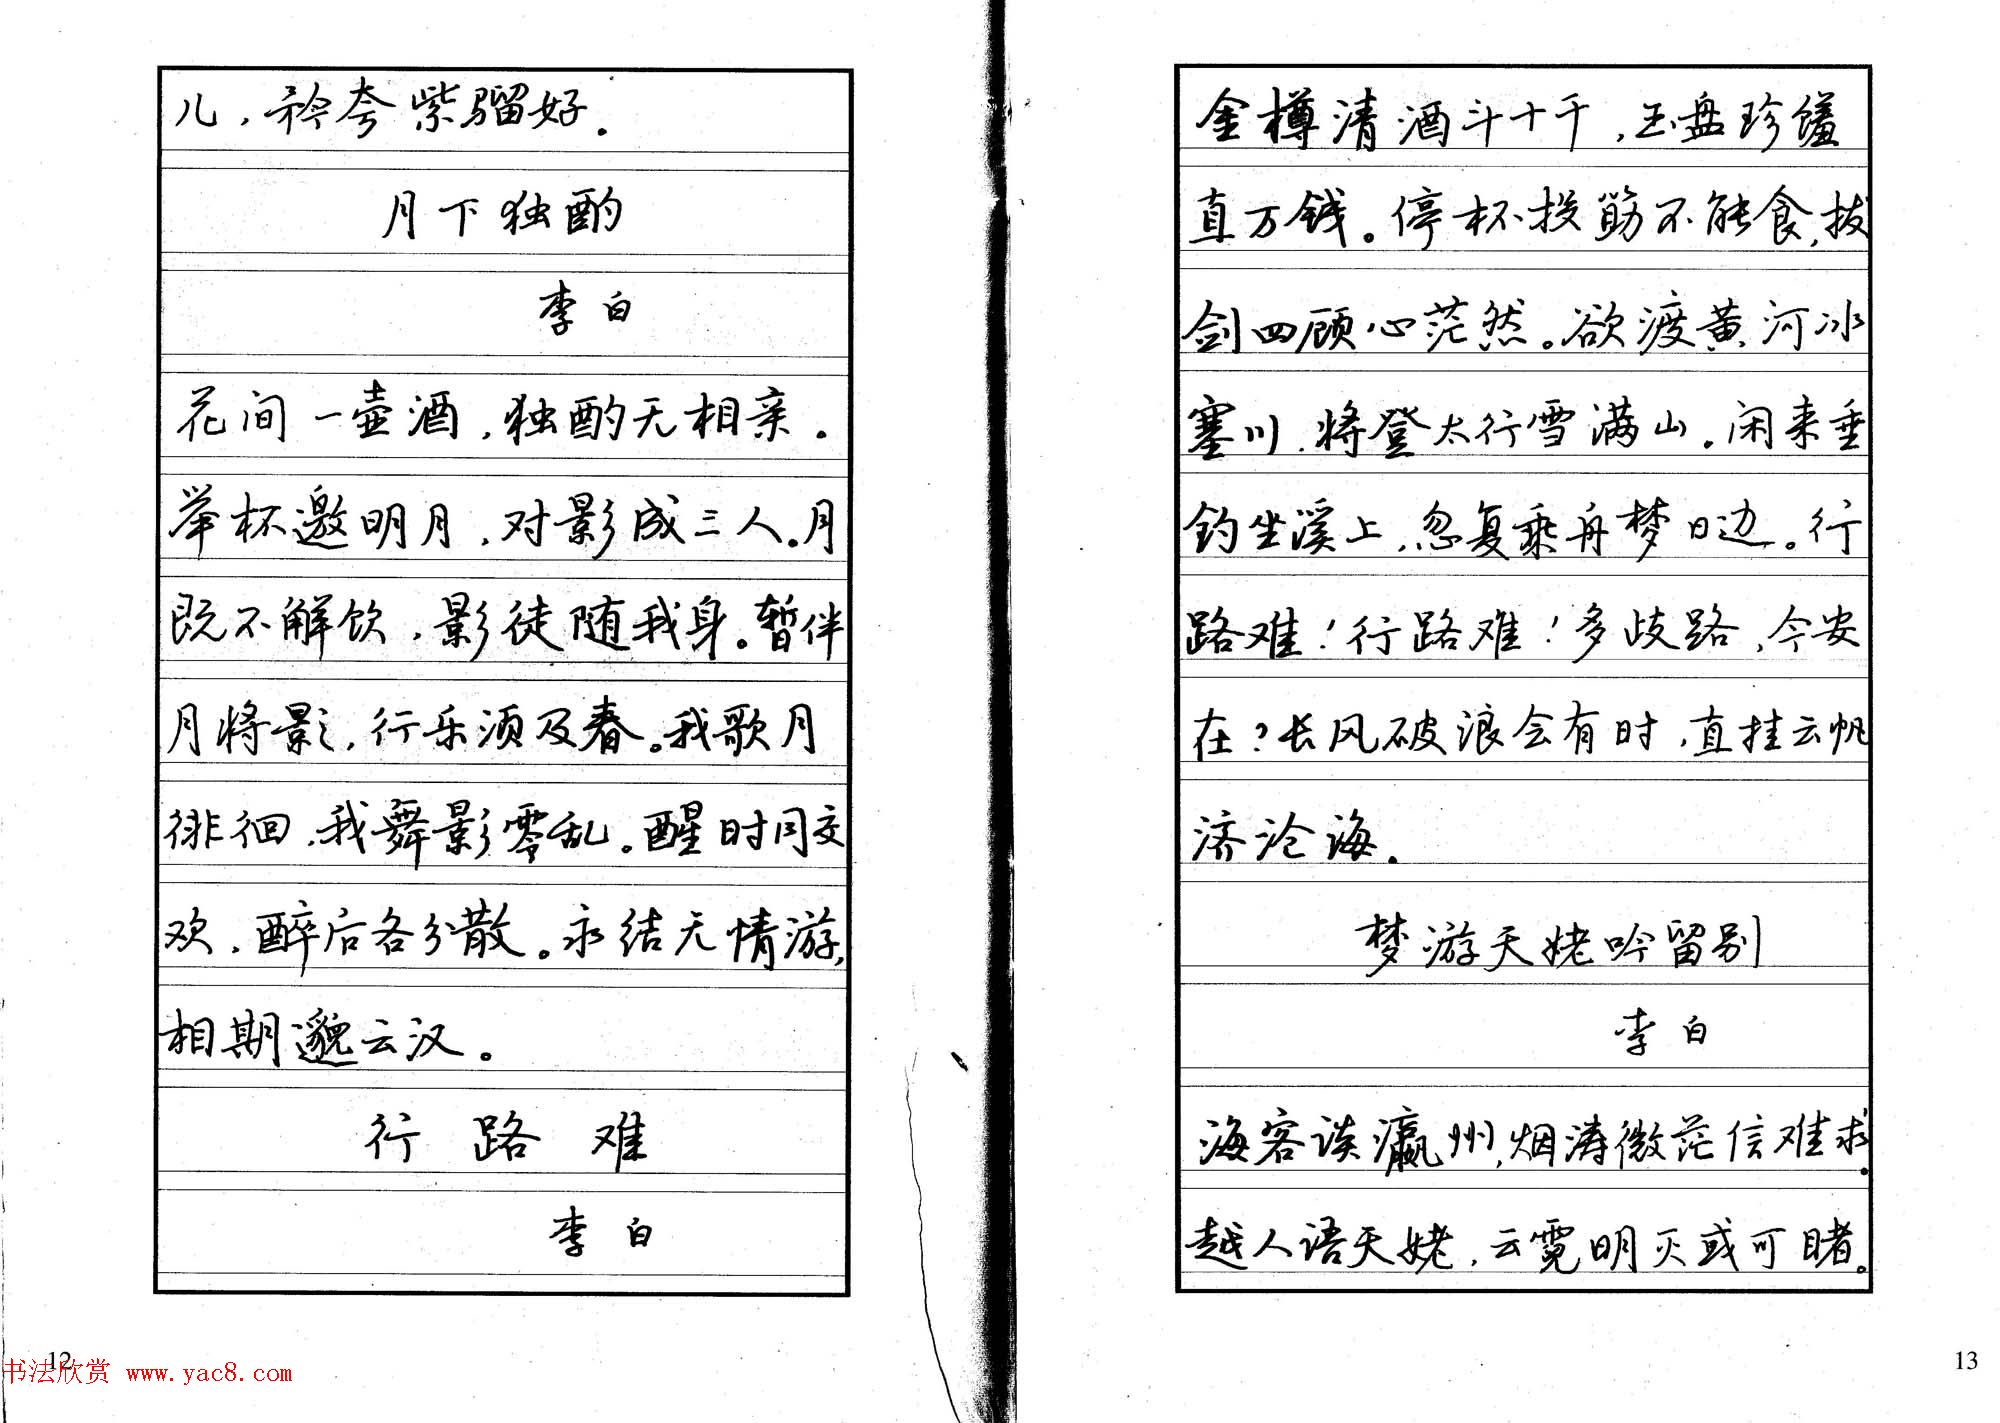 儿,矜夸紫骝好.
月下独酌
李白
花间一壶酒,独酌无相亲.
举杯邀明月,对影成三人.月
既不解饮,影徒随我身。暂伴
月将影,行乐须及春。我歌月
徘徊,我舞影零乱。醒时同交
欢,醉后各分散。永结无情游,
相期邈云汉。
行路难
李白
12
书法欣赏 www.yac8.com
金樽清酒斗十千,玉盘珍馐
直万钱。停杯投筯不能食,拔
剑四顾心茫然。欲渡黄河冰
塞川,将登太行雪满山。闲来垂
钓坐溪上,忽复乘舟梦日边。行
路难!行路难!多歧路,今安
在?长风破浪会有时,直挂云帆
济沧海.
梦游天姥吟留别
李白
海客谈瀛州,烟涛微茫信难求.
越人语天姥,云霓明灭或可睹。
13